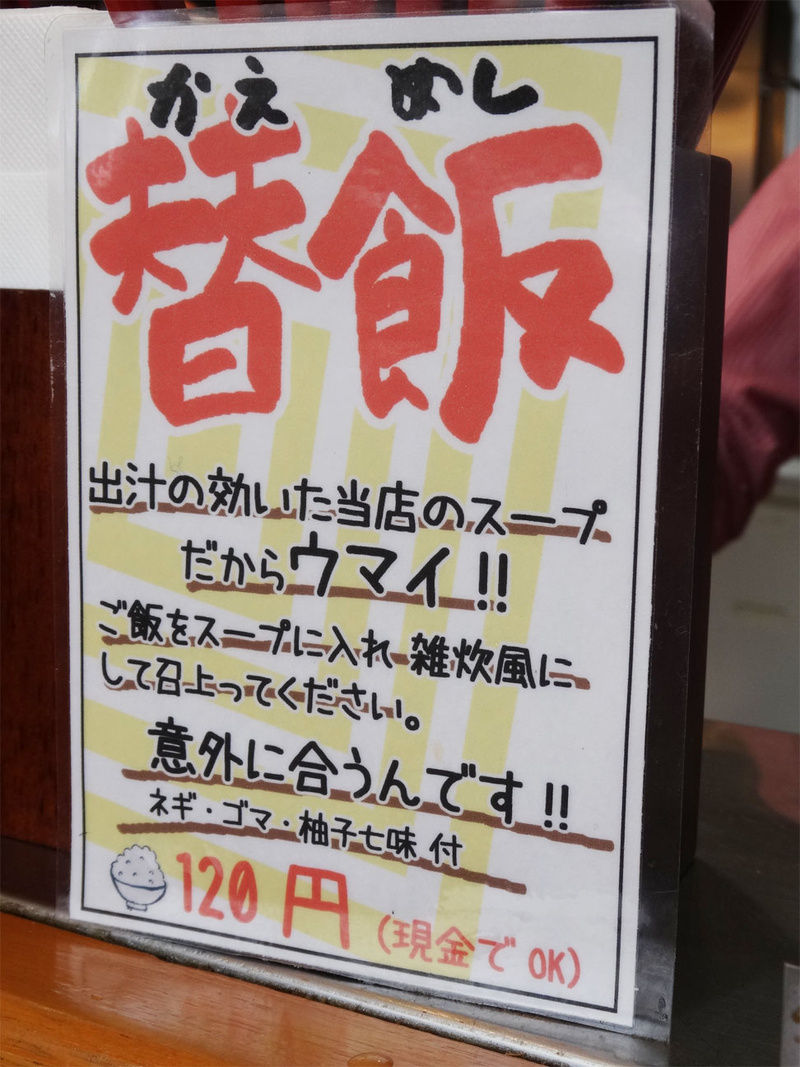 かえ めし
替飯
出汁の効いた当店のスープ
だからウマイ!!
ご飯をスープに入れ雑炊風に
して召上ってください。
意外に合うんです!!
ネギ・ゴマ・柚子七味 付
120円 (現金でOK)